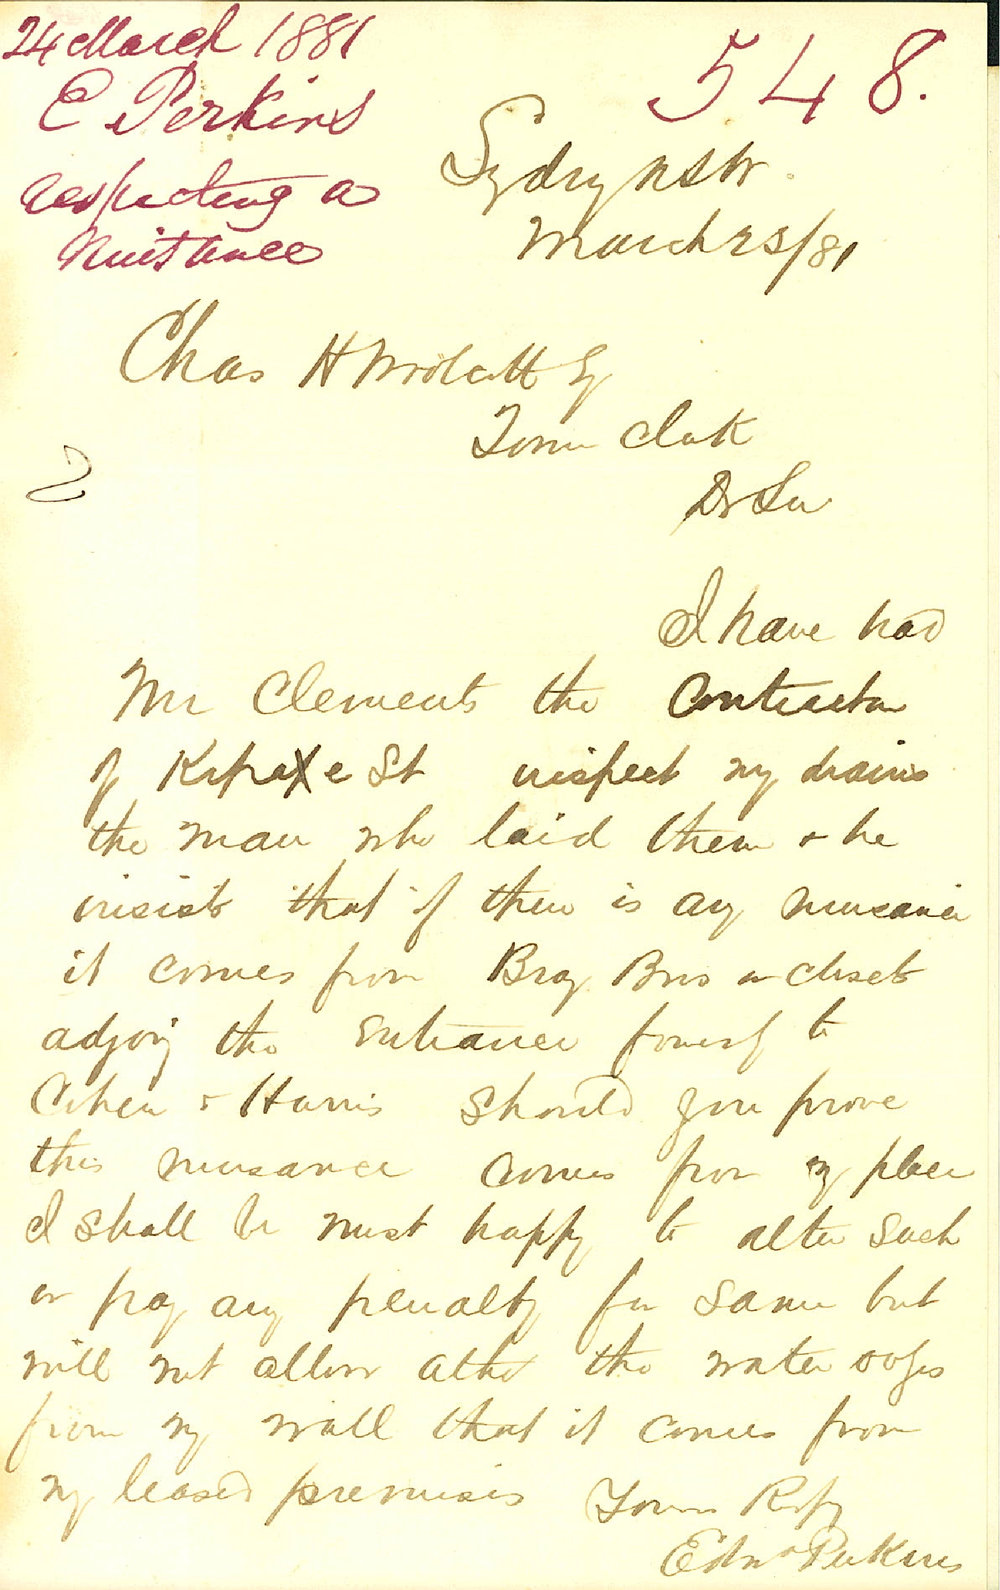 24 March 1881
E Perkins
respecting a
Nuisance
548.
Sydney NSW
March 23/81
Chas H Woolcott Eq
Town Clerk
Dr Sir
I have had
Mr Clements the Contractor
of Kipaxe St inspect my drains
the man who laid them & he
insists that if there is any nuisance
it comes from Bray Bros or closet
adjoing the Entrance to
Cohen & Harris Should you prove
this nuisance comes from my place
I shall be most happy to alter such
or pay any penalty for same but
will not allow altho the water oozes
from my wall that it comes from
my leased premises
Yours Rpy
Edwd Perkins